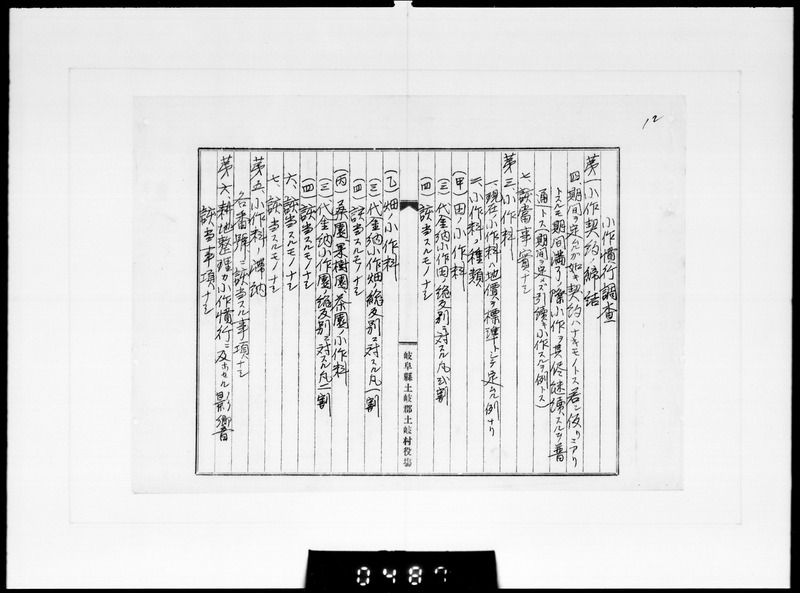 12
小作慣行調査
第一、小作契約ノ締結
四、期間ヲ定メシガ如キ契約ハナキモノトス若シ仮リニアリ
トスルモ期間満了ノ際小作ヲ其侭継續スルヲ普
通トス(期間ヲ定メズ引續キ小作スルヲ例トス)
七、該當事實ナシ
第三、小作料
一、現在ノ小作料ハ地價ヲ標準トシテ定ムル例ナリ
二、小作料ノ種類
(甲)田ノ小作料
(三)代金納小作田ノ総反別ニ対スル凡弐割
(四)該当スルモノナシ
岐阜縣土岐郡土岐村役場
(乙)畑ノ小作料
(三)代金納小作畑ノ総反別ニ対スル凡一割
(四)該当スルモノナシ
(丙)桑園、果樹園、茶園ノ小作料
(三)代金納小作園ノ総反別ニ対スル凡一割
(四)該当スルモノナシ
六、該当スルモノナシ
七、該当スルモノナシ
第五、小作料ノ滞納
各番號ニ該当スル事項ナシ
第六、耕地整理ガ小作慣行ニ及ホセル影響
該当事項ナシ
0487